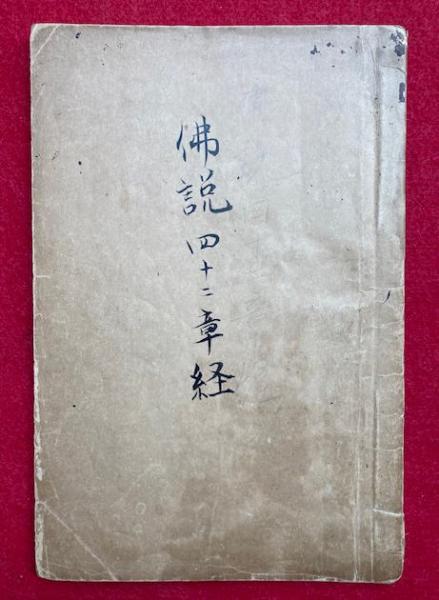 佛説四十二章経